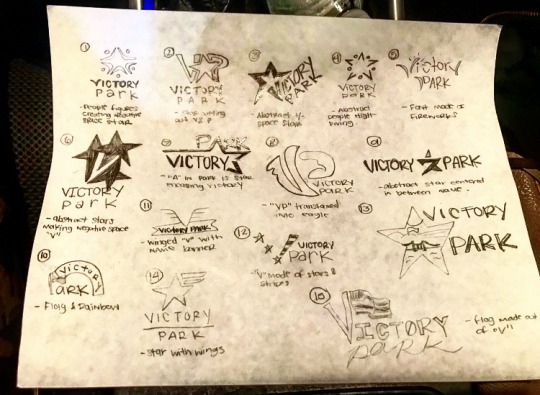 ①
VICTORY
PARK
- People figures
creating negative
space star
②
VP
VICTORY
PARK
- Star
out V & P
③
VICTORY
PARK
- Abstract +/-
space stars
④
VICTORY
PARK
- Abstract
people High-
fiving
⑤
VICTORY
PARK
- Font made of
fireworks
⑥
VICTORY
Park
- abstract stars
making negative space
"V"
⑦
PARK
VICTORY
- "A" in park is star
VICTORY
PARK
- "VP" transformed
into eagle
⑨
VICTORY PARK
- abstract star centered
in between name.
⑩
VICTORY
PARK
- Flag & Rainbow
⑪
VICTORY PARK
- Winged "V" with
name banner
⑫
VICTORY
Park
- "V" made of stars &
stripes
⑬
VICTORY
PARK
⑭
VICTORY
PARK
- Star with wings
⑮
VICTORY
PARK
- flag made out
of "V"